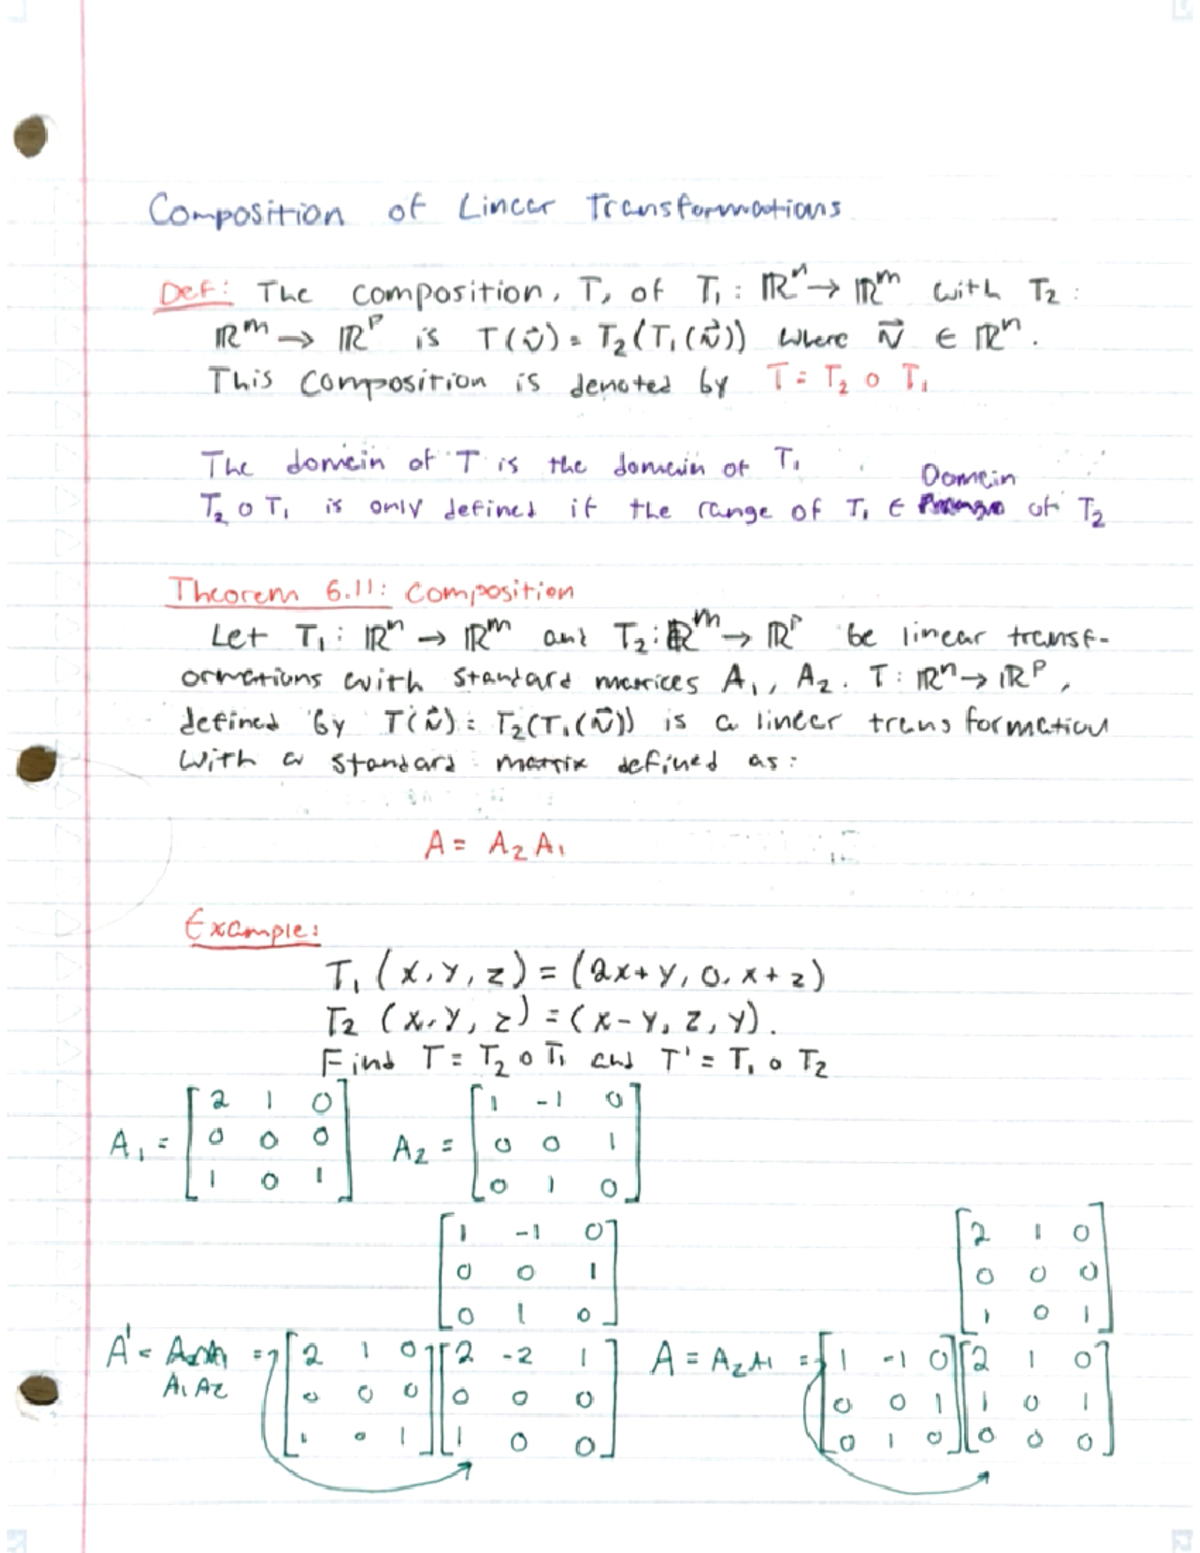 Composition of Linear Transformations
Def: The composition, T, of T₁: ℝⁿ → ℝᵐ with T₂:
ℝᵐ → ℝᵖ is T(v⃗) = T₂(T₁(v⃗)) where v⃗ ∈ ℝⁿ.
This composition is denoted by T = T₂ ∘ T₁
The domain of T is the domain of T₁
Domain
T₂ ∘ T₁ is only defined if the range of T₁ ∈ of T₂
Theorem 6.11: Composition
Let T₁: ℝⁿ → ℝᵐ and T₂: ℝᵐ → ℝᵖ be linear transf-
ormations with standard matrices A₁, A₂. T: ℝⁿ → ℝᵖ,
defined by T(v⃗) = T₂(T₁(v⃗)) is a linear transformation
with a standard matrix defined as:
A = A₂A₁
Example:
T₁ (x, y, z) = (2x+y, 0, x+z)
T₂ (x, y, z) = (x-y, z, y).
Find T = T₂ ∘ T₁ and T' = T₁ ∘ T₂
2 1 0 1 -1 0
A₁ = 0 0 0 A₂ = 0 0 1
1 0 1 0 1 0
1 -1 0 2 1 0
0 0 1 0 0 0
0 1 0 1 0 1
A' = = 2 1 0 2 -2 1 A = A₂A₁ = 1 -1 0 2 1 0
A₁A₂ 0 0 0 0 0 0 0 0 1 1 0 1
1 0 1 1 0 0 0 1 0 0 0 0